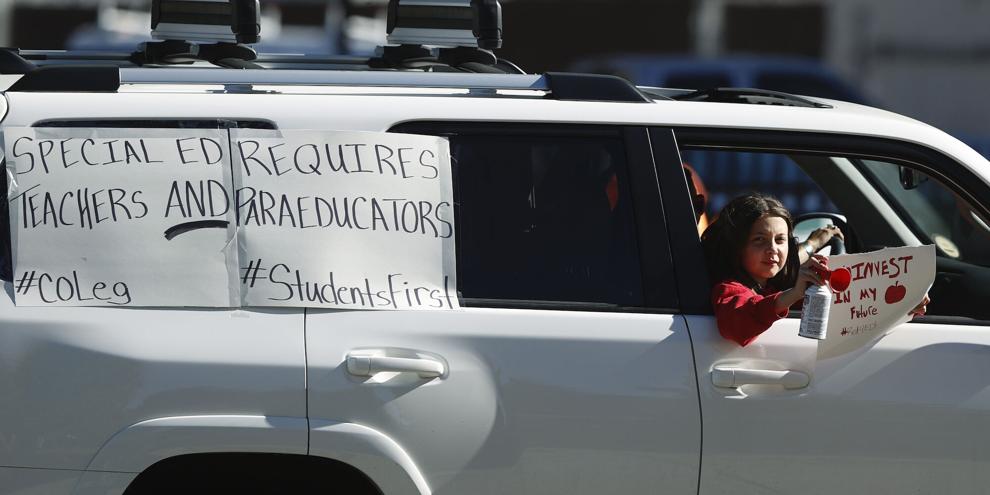 SPECIAL ED
TEACHERS AND
#COLeg
REQUIRES
PARAEDUCATORS
#StudentsFirst
INVEST
IN MY
Future